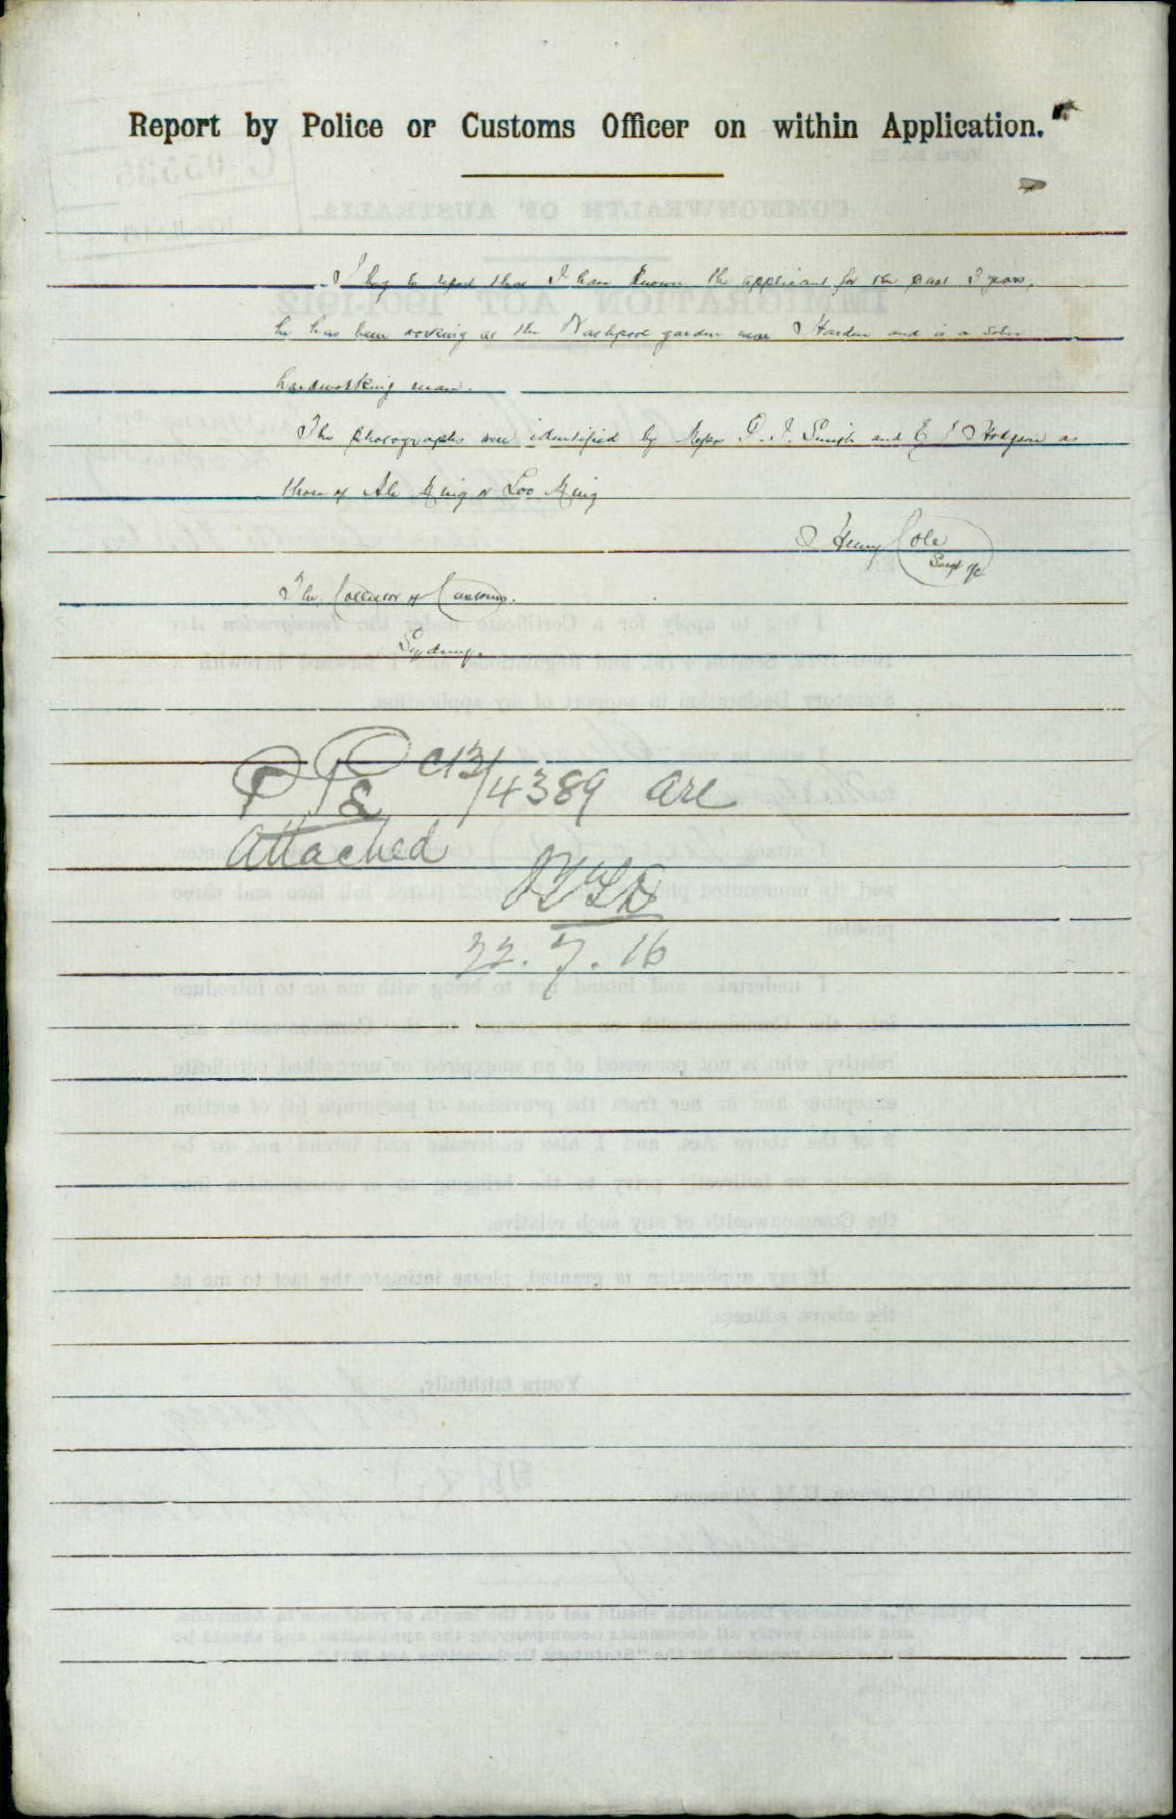 Report by Police or Customs Officer on within Application.
I beg to report that I have known the applicant for the past 3 years.
he has been working at the garden near Harden and is a sober
hardworking man.
The photographs were identified by Messrs Smith and E Hodgson as
those of Ah Ming or Loo Ming
Henry Cole
Sergt
The Collector of Customs.
Sydney.
C13/4389 are
Attached
22.7.16